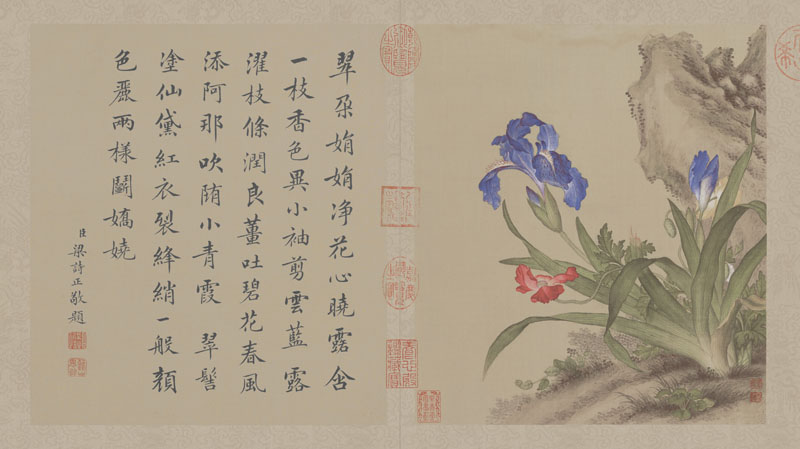 翠朶娟娟净花心曉露含
一枝香色異小袖剪雲藍 露
濯枝條潤良薑吐碧花春風
添阿那吹墮小青霞 翠髻
塗仙黛紅衣裂絳綃一般顔
色麗兩樣鬭嬌嬈
臣梁詩正敬題